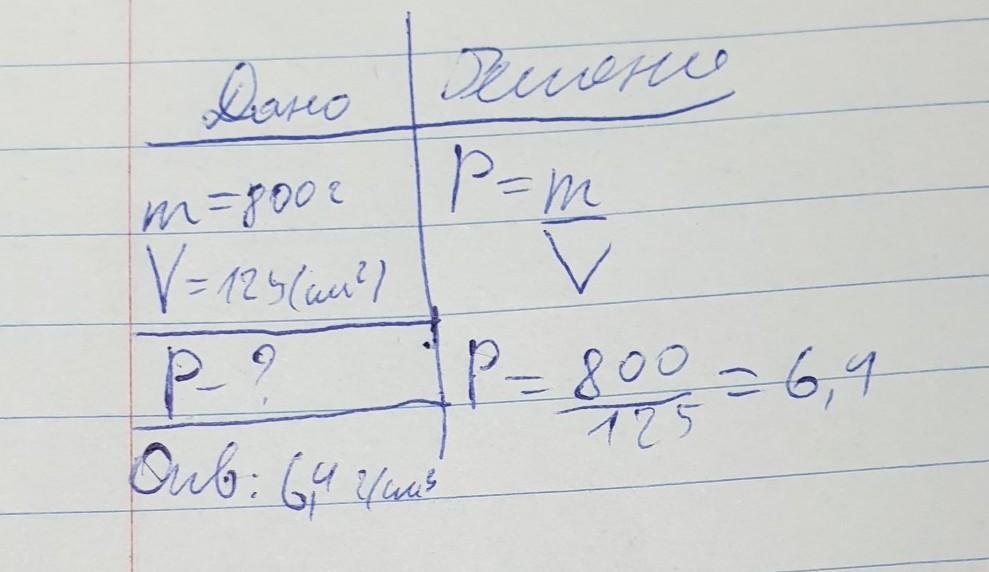 Дано Решение
m = 800 г
V = 125 (см³)
P - ?
P = m/V
P = 800/125 = 6,4
Отв: 6,4 г/см³